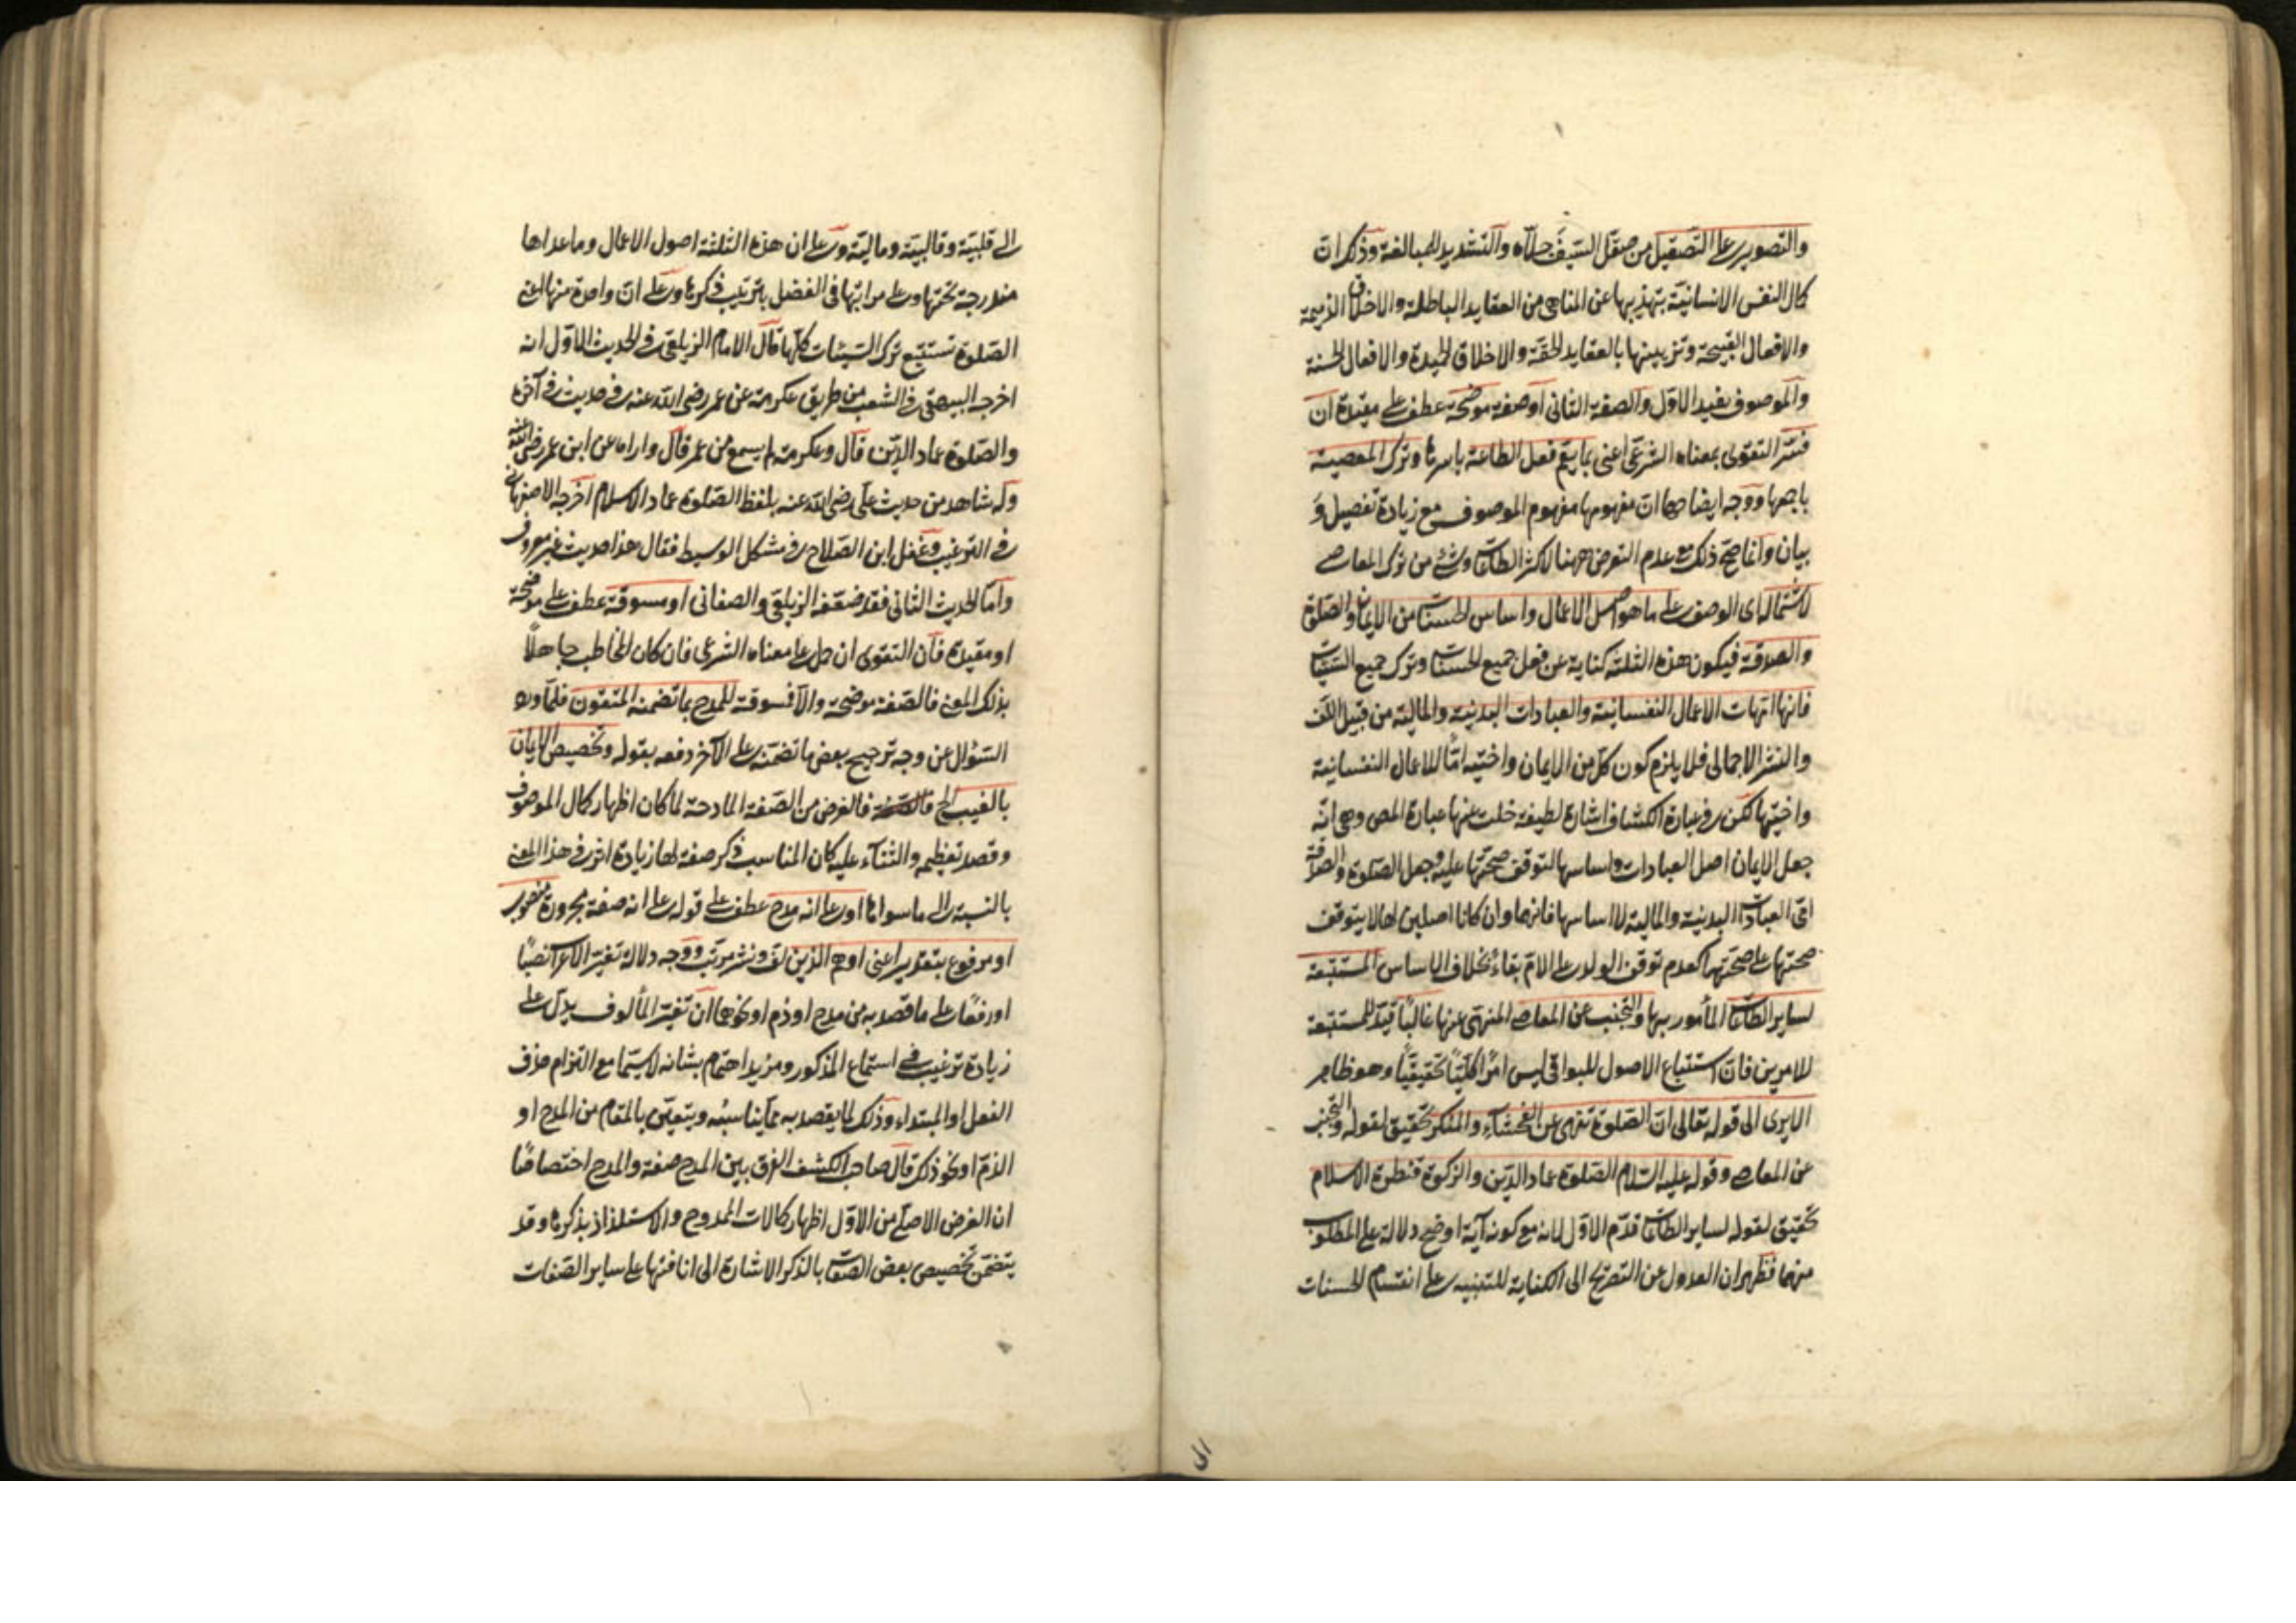 والتصوير على التصقيل من صقل السيف جلاه والتشديد للمبالغة وذكر ان
كمال النفس الانسانية بتهذيبها عن المناهى من العقايد الباطلة والاخلاق الذميمة
والافعال القبيحة وتزيينها بالعقايد الحقة والاخلاق الحميدة والافعال الحسنة
والموصوف يفيد الاول والصفة الثانى او صفة موضحة عطف على مقيدة ان
فسر التقوى بمعناه الشرعى اعنى بما يعم فعل الطاعة باسرها وترك المعصية
باجمعها ووجه ايضاحها ان مفهومها مفهوم الموصوف مع زيادة تفصيل و
بيان وانما صح ذلك مع عدم التعرض ههنا لاكثر الطاعات وشئ من ترك المعاصى
لاشتماله اى الوصف على ما هو اصل الاعمال واساس الحسنات من الايمان والصلوة
والصدقة فيكون هذه الثلثة كناية عن فعل جميع الحسنات وترك جميع السيئات
فانها امهات الاعمال النفسانية والعبادات البدنية والمالية من قبيل اللف
والنشر الاجمالى فلا يلزم كون كل من الايمان واختيه امّا للاعمال النفسانية
واختيها لكن فى عبارة الكشاف اشارة لطيفة خلت عنها عبارة المص وهى انه
جعل الايمان اصل العبادات واساسها لتوقف صحتها عليه وجعل الصلوة والصدقة
امى العبادات البدنية والمالية لا اساسها فانهما وان كانا اصلين لها لا يتوقف
صحتها على صحتهما كعدم توقف الولد على الام بقاء بخلاف الاساس المستتبعة
لساير الطاعات المأمور بها والتجنب عن المعاصى المنهى عنها غالبًا قيد للمستتبعة
للامرين فان استتباع الاصول للبواقى ليس امرًا كليًا تحقيقيًا وهو ظاهر
الا يرى الى قوله تعالى ان الصلوة تنهى عن الفحشاء والمنكر تحقيق لقوله والتجنب
عن المعاصى وقوله عليه السلام الصلوة عماد الدين والزكوة قنطرة الاسلام
تحقيق لقوله لساير الطاعات قدم الاول لانه مع كونه آية اوضح دلالة على المطلوب
منهما فظهر ان العدول عن التصريح الى الكناية للتنبيه على انقسام الحسنات
الى
الى قلبية وقالبية ومالية وعلى ان هذه الثلثة اصول الاعمال وما عداها
مندرجة تحتها وعلى مراتبها فى الفضل بترتيب ذكرها وعلى ان واحدة منها اعنى
الصلوة تستتبع ترك السيئات كلها قال الامام الزيلعى فى الحديث الاول انه
اخرجه البيهقى فى الشعب من طريق عكرمة عن عمر رضى الله عنه فى حديث فى آخره
والصلوة عماد الدين قال وعكرمة لم يسمع من عمر قال واراه عن ابن عمر رضى الله عنه
وله شاهد من حديث على رضى الله عنه بلفظ الصلوة عماد الاسلام اخرجه الاصبهانى
فى الترغيب وغفل ابن الصلاح فى مشكل الوسيط فقال هذا حديث غير معروف
واما الحديث الثانى فقد ضعفه الزيلعى والصغانى او مسوقة عطف على موضحة
او مقيدة فان التقوى ان حمل على معناه الشرعى فان كان المخاطب جاهلًا
بذلك المعنى فالصفة موضحة والا فمسوقة للمدح بما تضمنه المتقون فلما ورد
السؤال عن وجه ترجيح بعض ما تضمنه على الآخر دفعه بقوله وتخصيص الايمان
بالغيب الخ فالغرض من الصفة المادحة لما كان اظهار كمال الموصوف
وقصد تعظيمه والثناء عليه كان المناسب ذكر صفة لها زيادة اثر فى هذا المعنى
بالنسبة الى ما سواها او على انه مدح عطف على قوله على انه صفة مجرورة منصوب
او مرفوع بتقدير اعنى او هم الذين لف ونشر مرتب ووجه دلالة تغير الاعراب نصبًا
او رفعًا على ما قصد به من مدح او ذم او نحوهما ان تغير المألوف يدل على
زيادة ترغيب فى استماع المذكور ومزيد اهتمام بشانه لا سيما مع التزام حذف
الفعل او المبتداء وذلك لما يقصد به مما يناسبه ويتعين بالمقام من المدح او
الذم او نحو ذلك قال صاحب الكشف الفرق بين المدح صفة والمدح اختصاصًا
ان الغرض الاصلى من الاول اظهار كمالات الممدوح والاستلذاذ بذكرها وقد
يتضمن تخصيص بعض الصفات بالذكر الاشارة الى انافتها على ساير الصفات